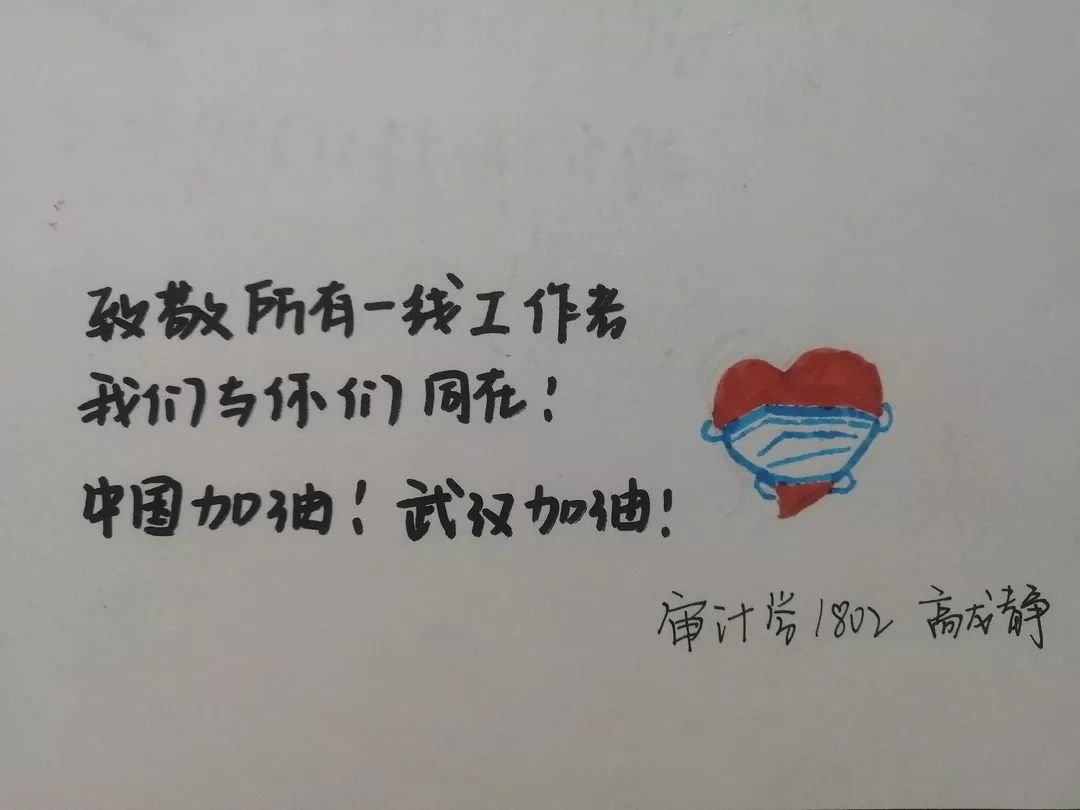 致敬所有一线工作者
我们与你们同在!
中国加油!武汉加油!
审计学1802 高成静